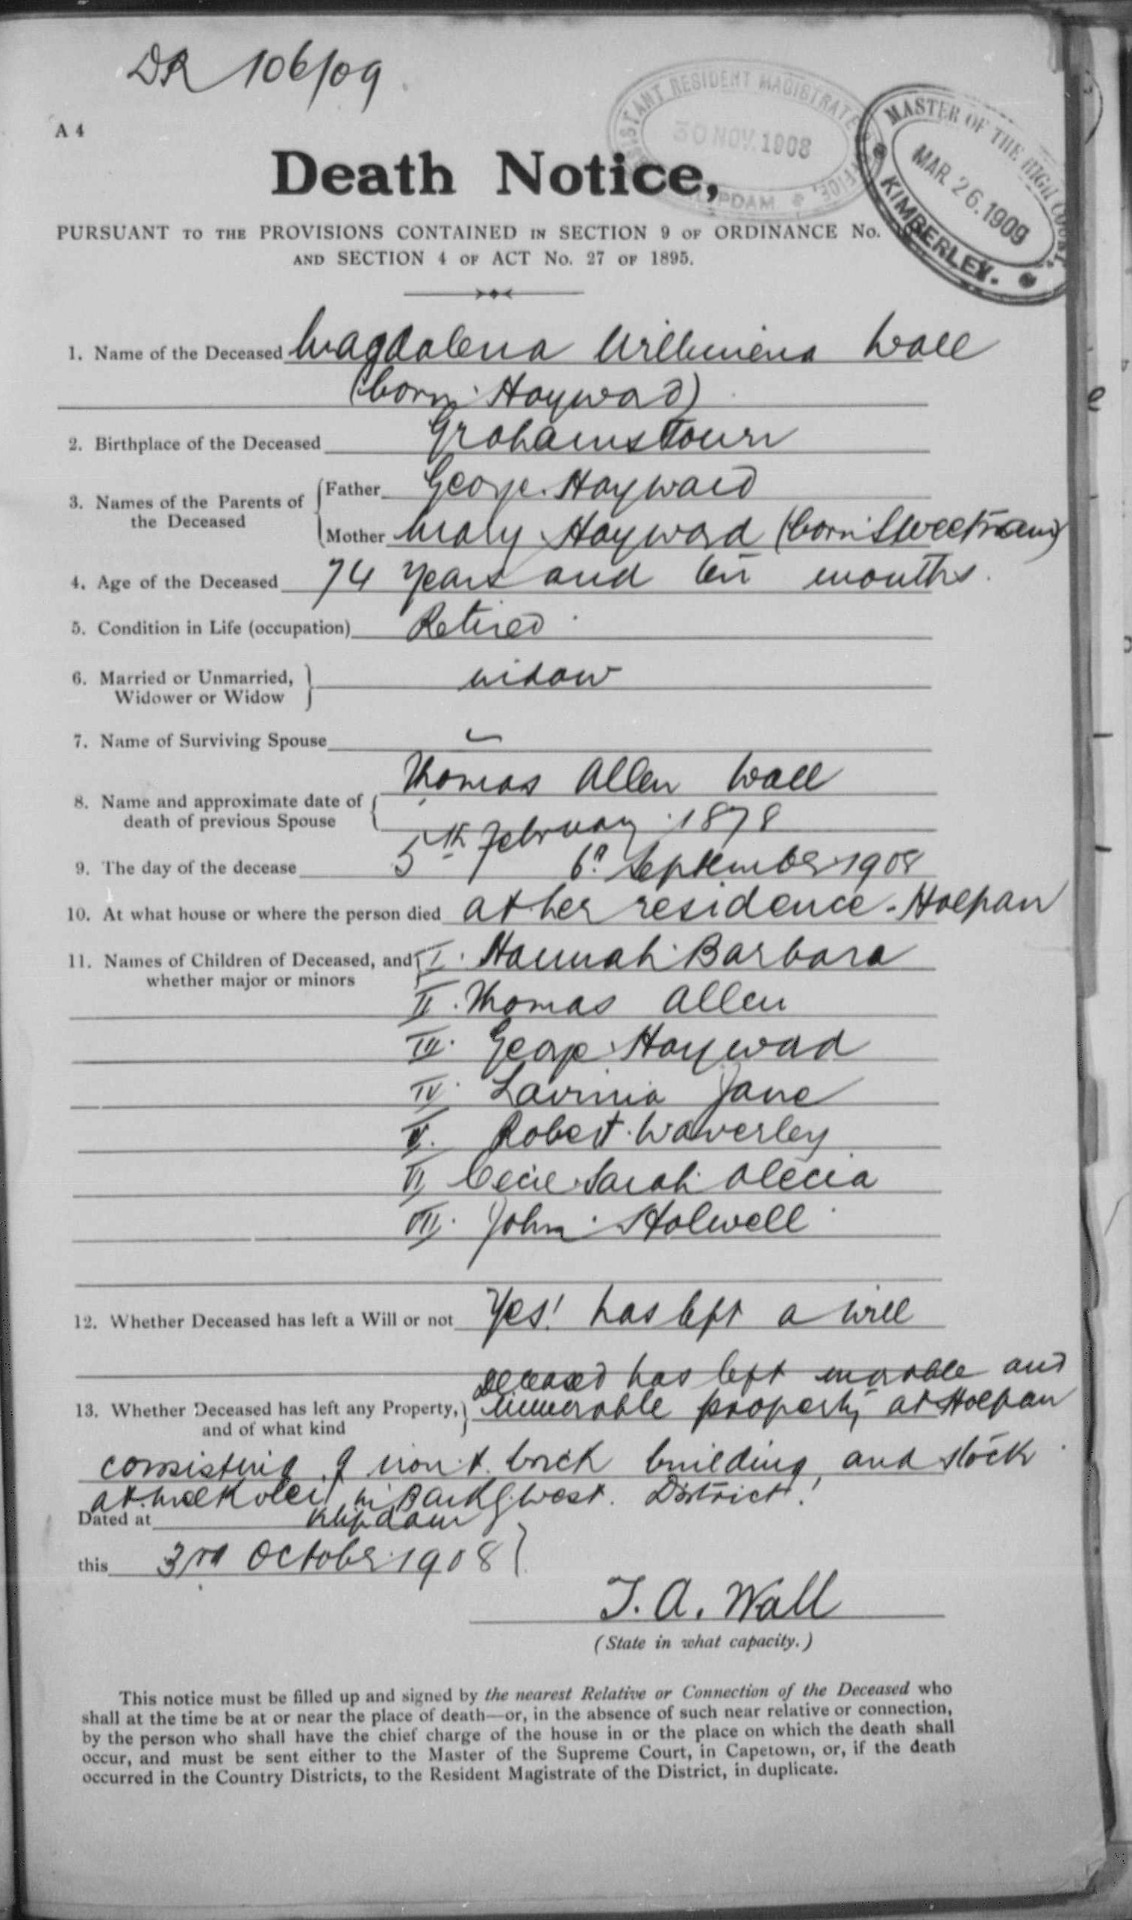 DR 106/09
ASSISTANT RESIDENT MAGISTRATE'S OFFICE, KLIPDAM
30 NOV. 1908
MASTER OF THE HIGH COURT, KIMBERLEY.
MAR. 26. 1909
A 4
Death Notice,
PURSUANT TO THE PROVISIONS CONTAINED IN SECTION 9 OF ORDINANCE No.
AND SECTION 4 OF ACT No. 27 OF 1895.
1. Name of the Deceased Magdalena Wilhmiena Wall
(born Hayward)
2. Birthplace of the Deceased Grahamstown
3. Names of the Parents of the Deceased
Father George Hayward
Mother Mary Hayward (born Sweetnam)
4. Age of the Deceased 74 years and ten months.
5. Condition in Life (occupation) Retired
6. Married or Unmarried, Widower or Widow widow
7. Name of Surviving Spouse —
8. Name and approximate date of death of previous Spouse Thomas Allen Wall
5th February 1878
9. The day of the decease 6th September 1908
10. At what house or where the person died at her residence - Holpan
11. Names of Children of Deceased, and whether major or minors
I. Hannah Barbara
II. Thomas Allen
III. George Hayward
IV. Lavinia Jane
V. Robert Waverley
VI. Cecie Sarah Alecia
VII. John Holwell
12. Whether Deceased has left a Will or not Yes! has left a will
13. Whether Deceased has left any Property, and of what kind
Deceased has left movable and
immovable property at Holpan
consisting of iron & brick building, and stock
at in Barkly West. District!
Dated at Klipdam
this 3rd October 1908
T. A. Wall
(State in what capacity.)
This notice must be filled up and signed by the nearest Relative or Connection of the Deceased who
shall at the time be at or near the place of death—or, in the absence of such near relative or connection,
by the person who shall have the chief charge of the house in or the place on which the death shall
occur, and must be sent either to the Master of the Supreme Court, in Capetown, or, if the death
occurred in the Country Districts, to the Resident Magistrate of the District, in duplicate.